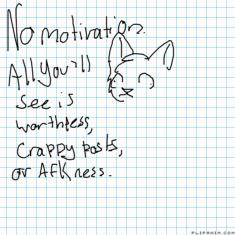 No motivation.
All You'll
see is
worthless,
crappy posts,
or AFKness.
FLIPANIM.COM